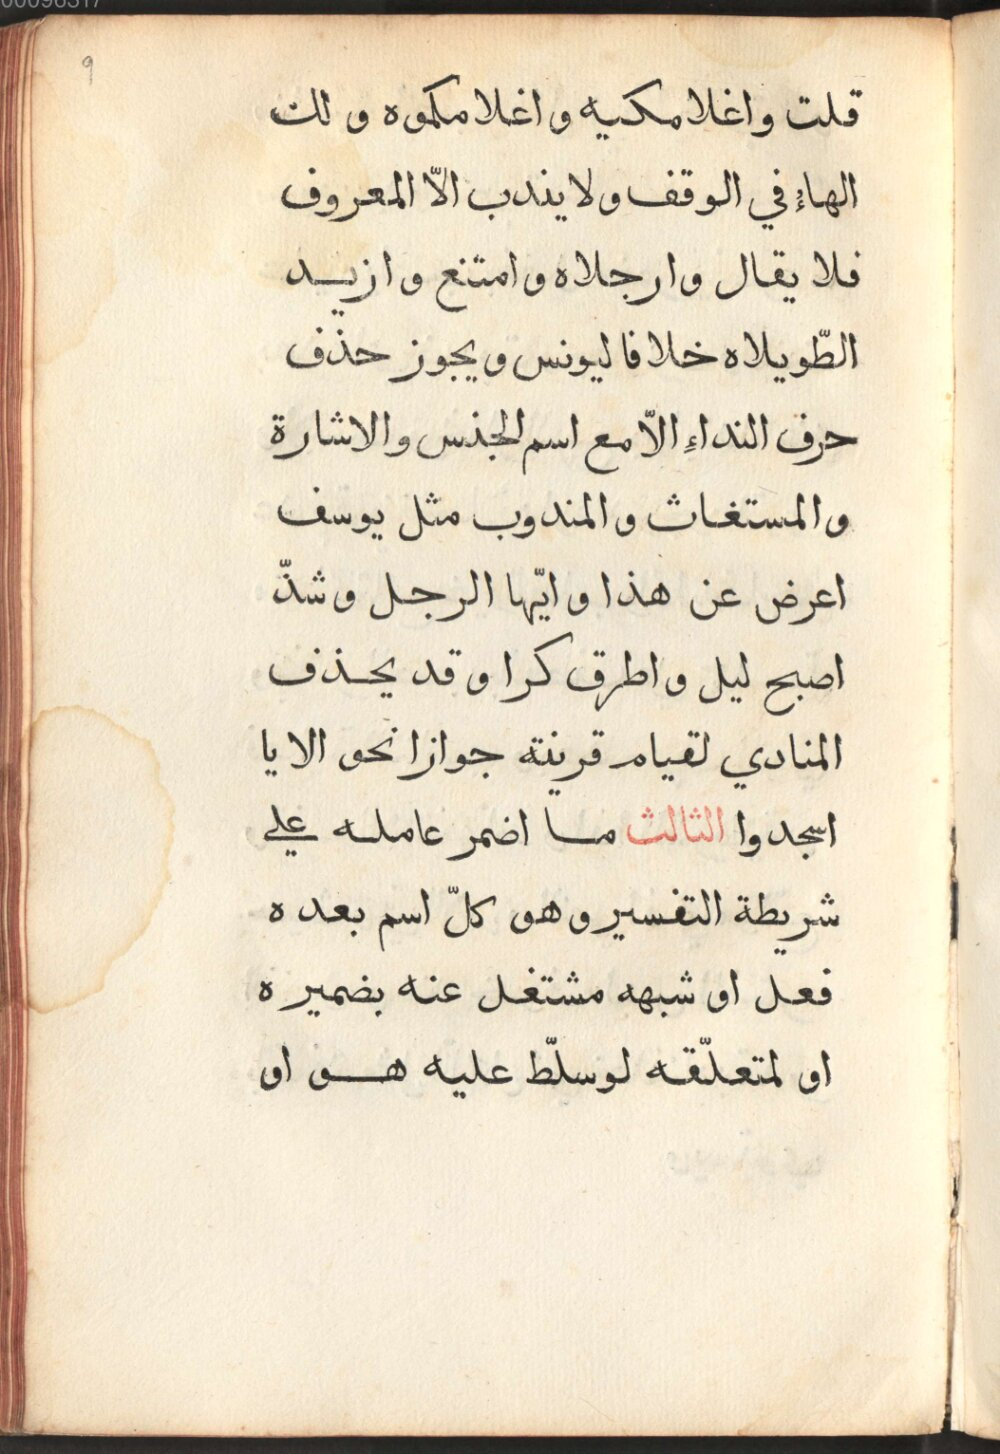 00096317
9
قلت واغلامكيه واغلامكموه ولك
الهاء في الوقف ولا يندب الّا المعروف
فلا يقال وارجلاه وامتنع وازيد
الطّويلاه خلافا ليونس ويجوز حذف
حرف النداء الّا مع اسم الجنس والاشارة
والمستغاث والمندوب مثل يوسف
اعرض عن هذا وايّها الرجل وشذّ
اصبح ليل واطرق كرا وقد يحذف
المنادي لقيام قرينة جوازا نحو الا يا
اسجدوا الثالث ما اضمر عامله علي
شريطة التفسير وهو كلّ اسم بعده
فعل او شبهه مشتغل عنه بضميره
او لمتعلّقه لو سلّط عليه هو او